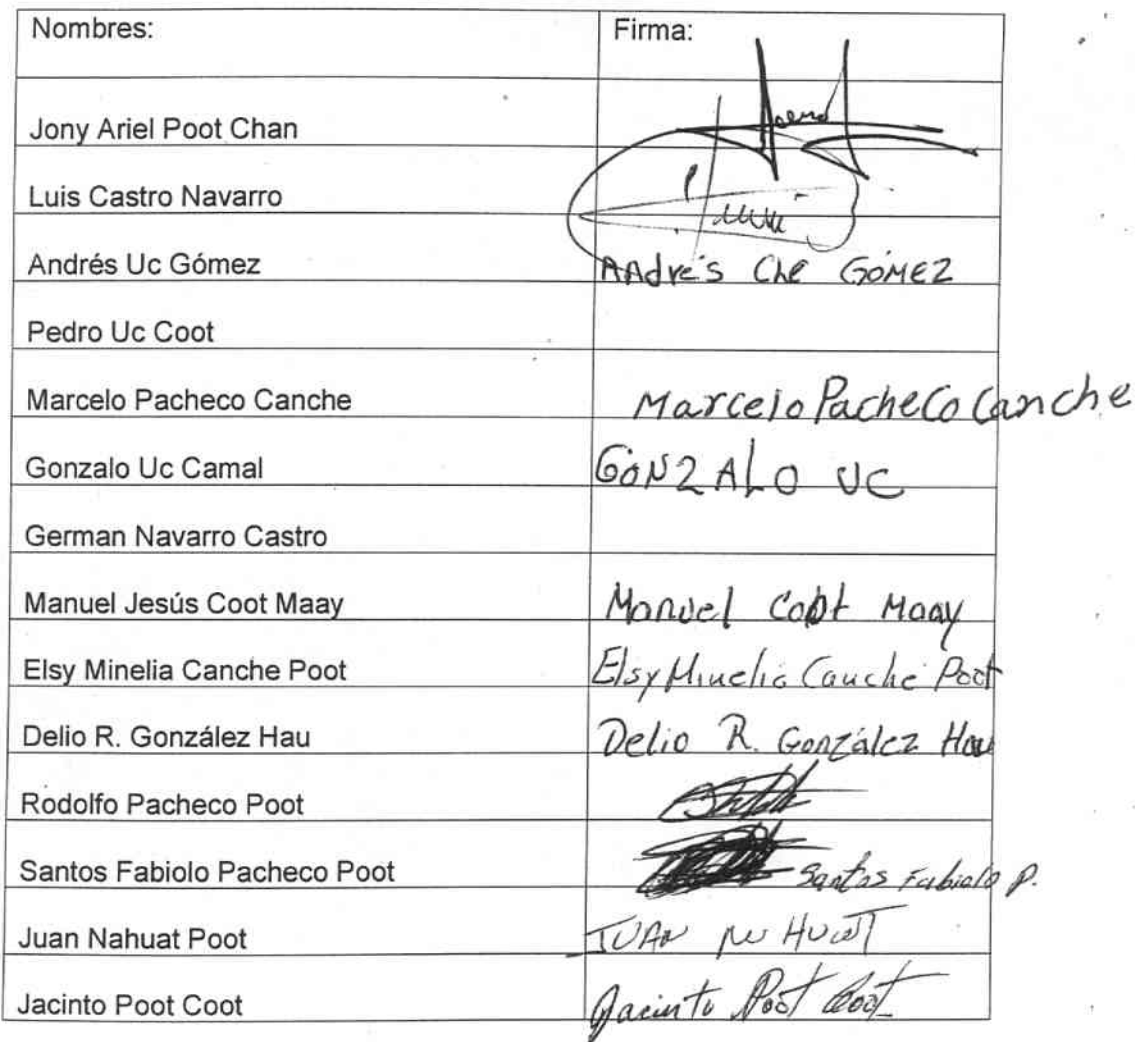 Nombres: Firma:
Jony Ariel Poot Chan
Luis Castro Navarro
Andrés Uc Gómez Andrés Che GóMEZ
Pedro Uc Coot
Marcelo Pacheco Canche Marcelo Pacheco Canche
Gonzalo Uc Camal GONZALO UC
German Navarro Castro
Manuel Jesús Coot Maay Manuel Coot Maay
Elsy Minelia Canche Poot Elsy Minelia Canche Poot
Delio R. González Hau Delio R. González Hau
Rodolfo Pacheco Poot
Santos Fabiolo Pacheco Poot Santos Fabiolo P.
Juan Nahuat Poot JUAN
Jacinto Poot Coot Jacinto Poot Coot